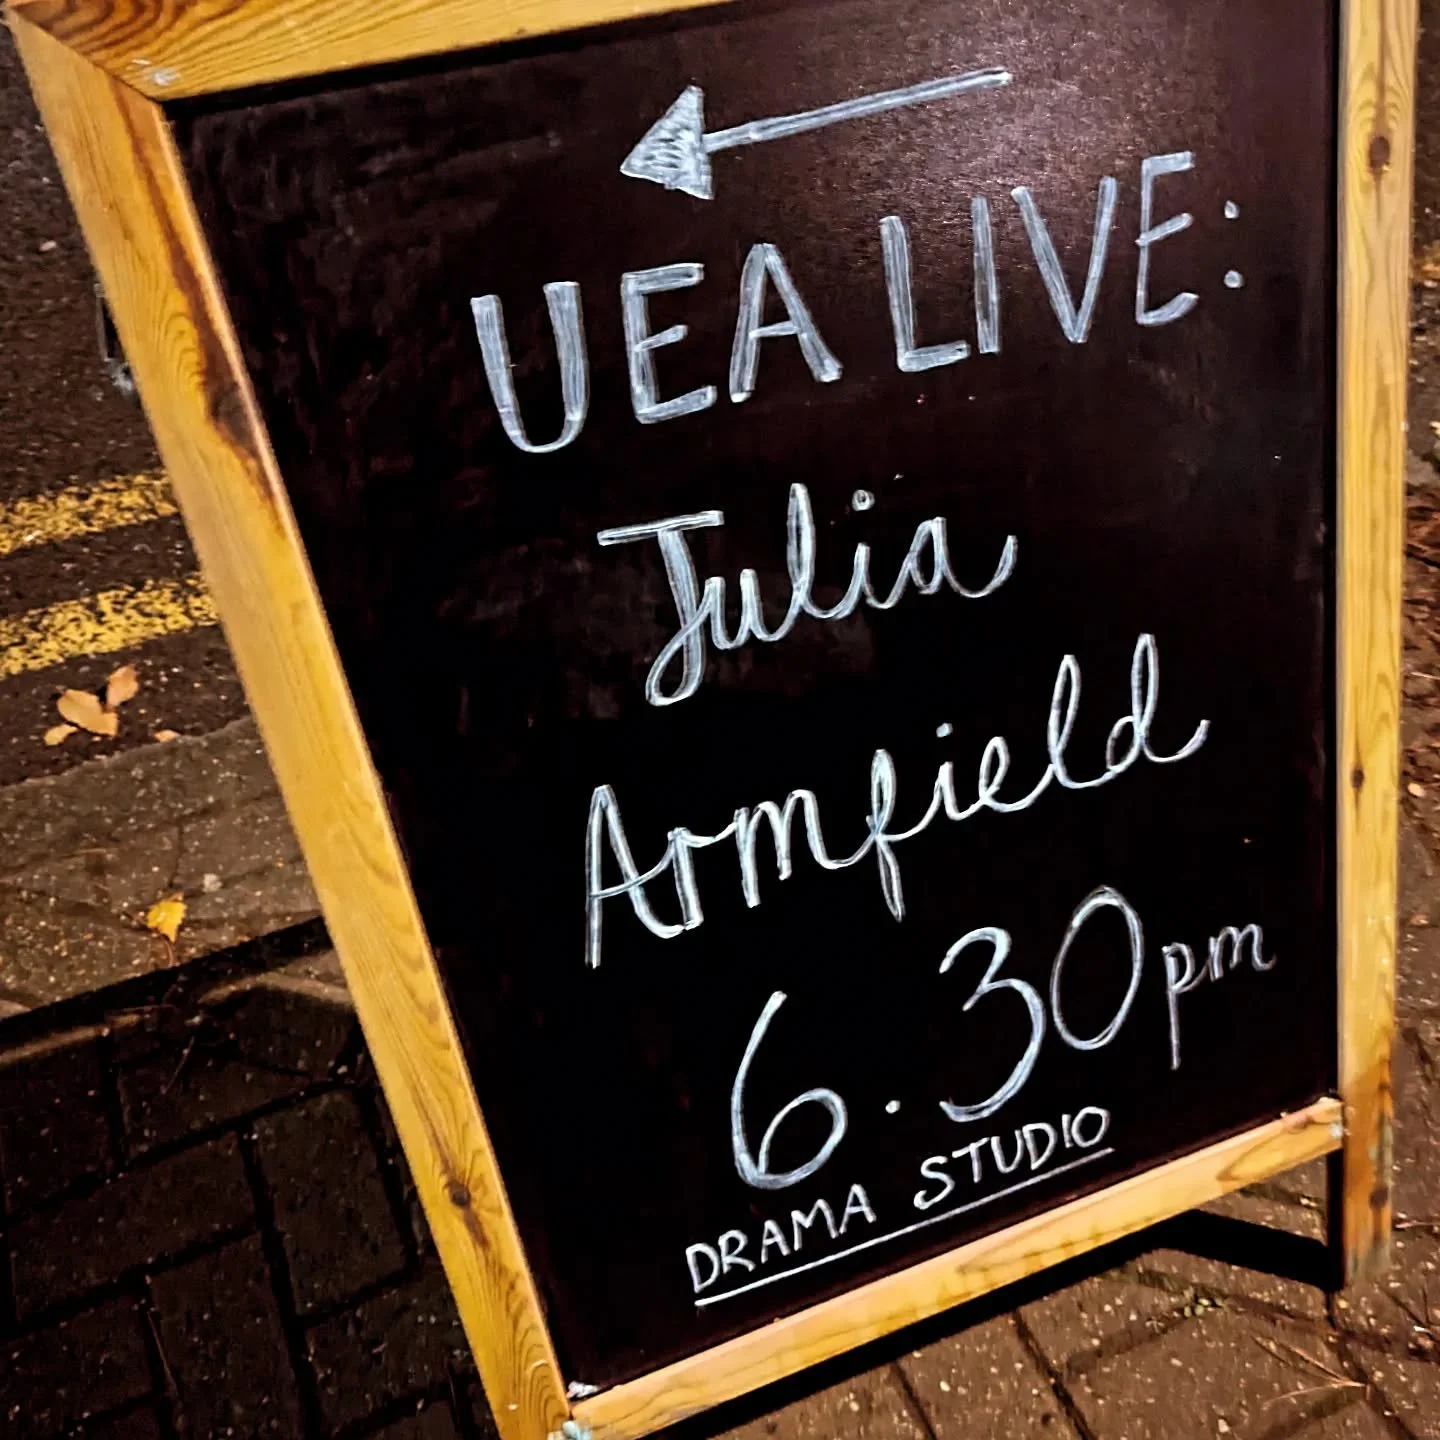 UEA LIVE:
Julia
Armfield
6.30pm
DRAMA STUDIO